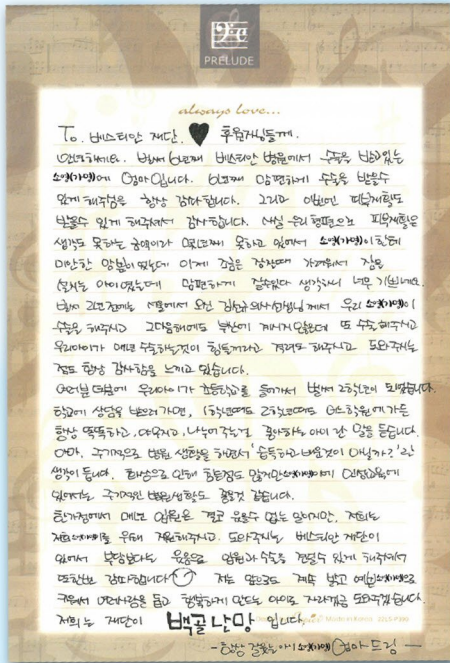 PRELUDE
always love...
To. 베스티안 재단. ♥ 후원자님들께.
안녕하세요. 벌써 6년째 베스티안 병원에서 수술을 받고있는
소영(가명)에 엄마입니다. 6년째 맘편하게 수술을 받을수
있게 해주심을 항상 감사합니다. 그리고 이번에 피부재활도
받을수 있게 해주셔서 감사합니다. 사실 우리 형편으로 피부재활은
생각도 못하는 금액이라 못하고 있어서 소영(가명)이한테
미안한 아이였는데 이제 조금은 가려워서 잠을
아이였는데 맘편하게 잘수있다 생각하니 너무 기쁘네요.
벌써 서울에서 오신 의사선생님께서 우리 소영(가명)이
수술을 해주시고 그다음해에도 부산에 계시지 않는데 또 수술해주시고
우리아이가 매년 수술하는것이 힘들꺼라고 격려도 해주시고 도와주시는
점도 항상 감사함을 느끼고 있습니다.
여러분 덕분에 우리아이가 초등학교를 들어가서 벌써 2학년이 되었습니다.
학교에 상담을 받으러가면, 1학년때도 2학년때도 어느학원에 가든
항상 똑똑하고, 나누어주는걸 좋아하는 아이란 말을 듣습니다.
아마, 주기적으로 병원 생활을 해면서 '습득하고 배운것이 아닐까?'란
생각이 듭니다. 화상으로 인해 힘든점도 많지만 소영(가명)이에 인성교육에
있어서는 주기적인 병원생활도 좋은것 같습니다.
한가정에서 매년 입원은 결코 쉬울수 없는 일이지만, 저희는
저희 소영(가명)이를 위해 지원해주시고, 도와주시는 베스티안 재단이
있어서 부담보다는 웃음으로 입원과 수술을 견딜수 있게 해주셔서
또한번 감사합니다 저도 앞으로도 계속 밝고 예쁜 소영(가명)으로
커서 어려운사람을 돕고 행복하게 만드는 아이로 자라게끔 도와주겠습니다.
저희는 재단이 백골난망 입니다.
-항상 잘웃는아이 소영(가명) 엄마드림-